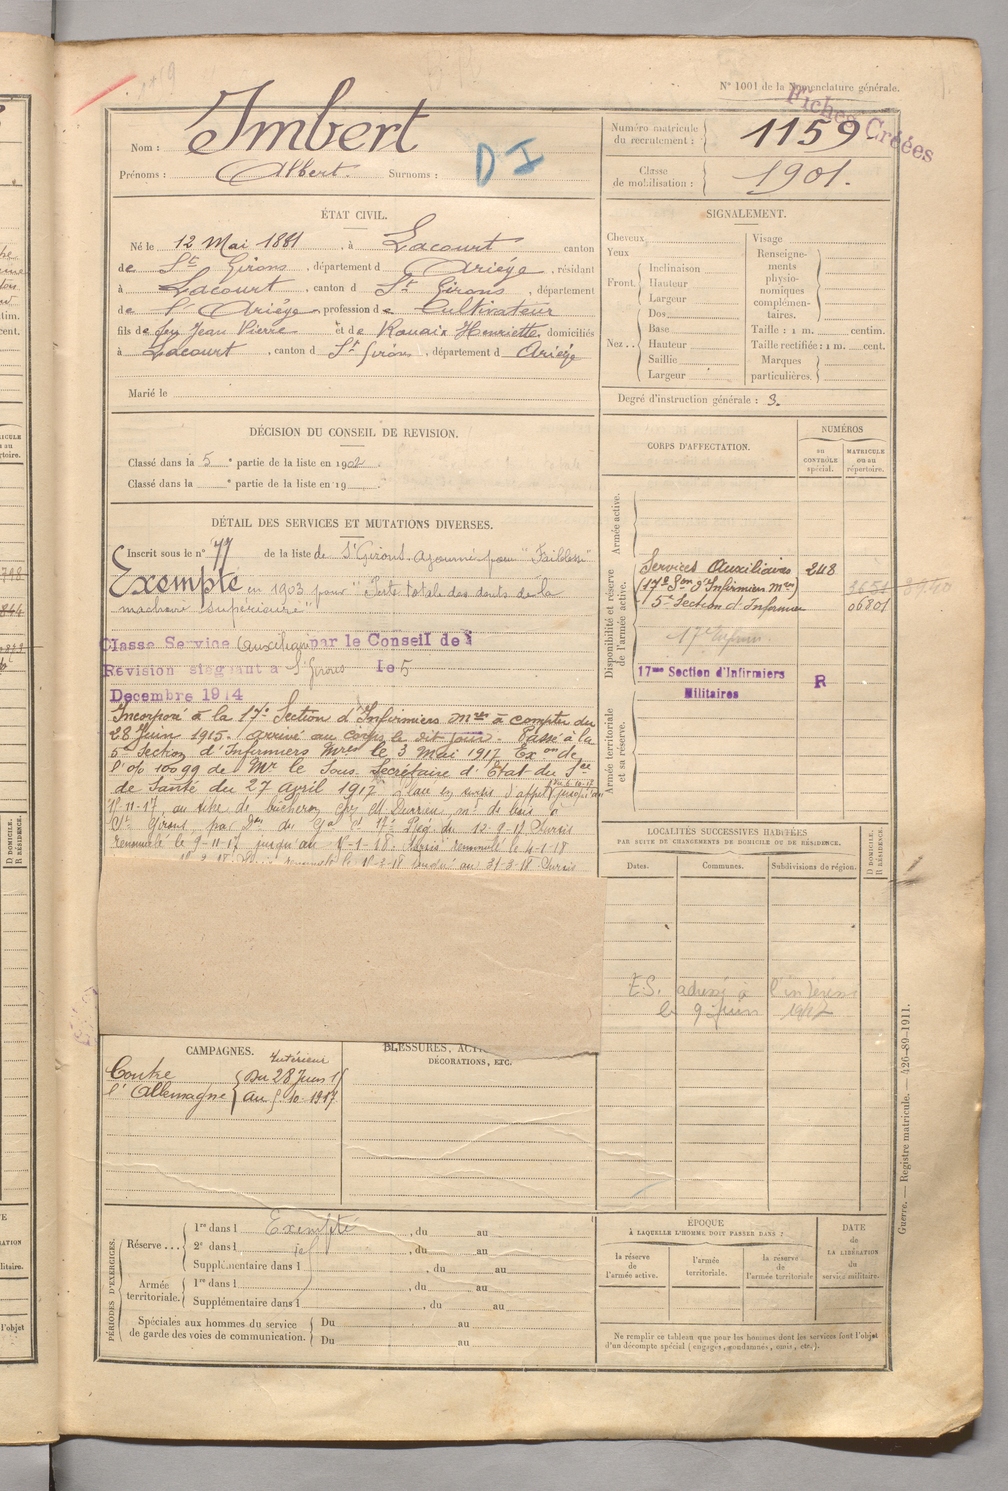 N° 1001 de la Nomenclature générale.
Fiches Créées
Nom : Imbert
Prénoms : Albert. Surnoms :
D I
Numéro matricule du recrutement : 1159
Classe de mobilisation : 1901.
ÉTAT CIVIL.
Né le 12 Mai 1881, à Lacourt canton
de St Girons, département d Ariége, résidant
à Lacourt, canton d St Girons, département
de l'Ariége profession de Cultivateur
fils de feu Jean Pierre et de Rouaix Henriette domiciliés
à Lacourt, canton d St Girons, département d Ariége
Marié le
SIGNALEMENT.
Cheveux
Yeux
Front.
Inclinaison
Hauteur
Largeur
Nez..
Dos
Base
Hauteur
Saillie
Largeur
Visage
Renseignements physionomiques complémentaires.
Taille : 1 m. centim.
Taille rectifiée : 1 m. cent.
Marques particulières.
Degré d'instruction générale : 3.
DÉCISION DU CONSEIL DE REVISION.
Classé dans la 5e partie de la liste en 1902
Classé dans la e partie de la liste en 19
DÉTAIL DES SERVICES ET MUTATIONS DIVERSES.
Inscrit sous le n° 77 de la liste de St Girons. ajourné pour "Faiblesse"
Exempté en 1903 pour "Perte totale des dents de la
machoire supérieure"
Classe Service Auxiliaire par le Conseil de
Révision siegeant a St Girons le 5
Decembre 1914
Incorporé à la 17e Section d'Infirmiers Mres à compter du
28 Juin 1915. Arrivé au corps le dit jour. Passé à la
5e Section d'Infirmiers Mres le 3 Mai 1917 Exon de
l'o/o 10099 de Mr le Sous Secrétaire d'Etat du Sce
de Santé du 27 avril 1917
11-17 au titre de bûcheron chez M Durrieu, md de bois à
St Girons, par Don du Gal Ct 17e Rég. du 12-9-17 Sursis
renouvelé le 9-11-17 jusqu'au 15-1-18. Sursis renouvelé le 4-1-18
CORPS D'AFFECTATION.
NUMÉROS
au CONTRÔLE spécial.
MATRICULE ou au répertoire.
Armée active.
Disponibilité et réserve de l'armée active.
Services Auxiliaires 248
(17e Son d'Infirmiers Mres) 3651 3940
5e Section d'Infirmiers 06801
17e Infirm.
17me Section d'Infirmiers
Militaires
R
Armée territoriale et sa réserve.
LOCALITÉS SUCCESSIVES HABITÉES
PAR SUITE DE CHANGEMENTS DE DOMICILE OU DE RÉSIDENCE.
Dates. Communes. Subdivisions de région.
D DOMICILE. R RÉSIDENCE.
E.S. adressé à
le 9 juin 1917
CAMPAGNES.
Intérieur
Contre
l'Allemagne
Du 28 Juin 15
au 5-10-1917
BLESSURES, ACTI
DÉCORATIONS, ETC.
PÉRIODES D'EXERCICES.
Réserve...
1re dans l Exempté, du au
2e dans l, du au
Supplémentaire dans l, du au
Armée territoriale.
1re dans l, du au
Supplémentaire dans l, du au
Spéciales aux hommes du service de garde des voies de communication.
Du au
Du au
ÉPOQUE
À LAQUELLE L'HOMME DOIT PASSER DANS :
la réserve de l'armée active.
l'armée territoriale.
la réserve de l'armée territoriale
DATE de LA LIBÉRATION du service militaire.
Ne remplir ce tableau que pour les hommes dont les services font l'objet
d'un décompte spécial (engagés, condamnés, omis, etc.).
Guerre. — Registre matricule. — 426-89-1911.